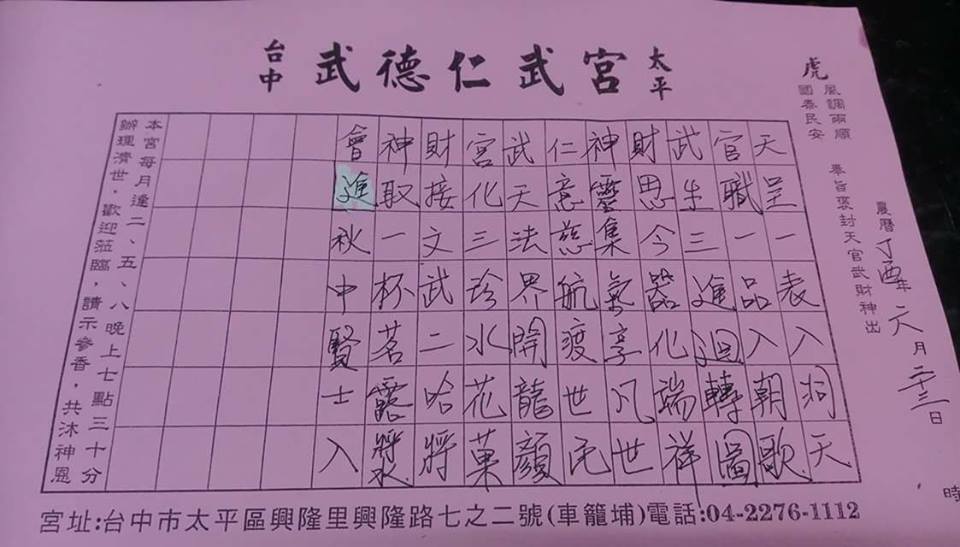 太平
武德仁武宮
台中
農曆丁酉年六月二十三日 時
風調雨順
國泰民安
虎
奉旨褒封天官武財神出
天呈一表入洞天
官職一品入朝歌
武生三進迴轉圖
財思今器化瑞祥
神靈集氣享凡世
仁意慈航渡世民
武天法界開龍顏
宮化三珍水花菓
財接文武二哈將
神取一杯茗露漿
會進秋中賢士入
本宮每月逢二、五、八晚上七點三十分
辦理濟世，歡迎蒞臨，請示參香，共沐神恩
宮址:台中市太平區興隆里興隆路七之二號(車籠埔)電話:04-2276-1112